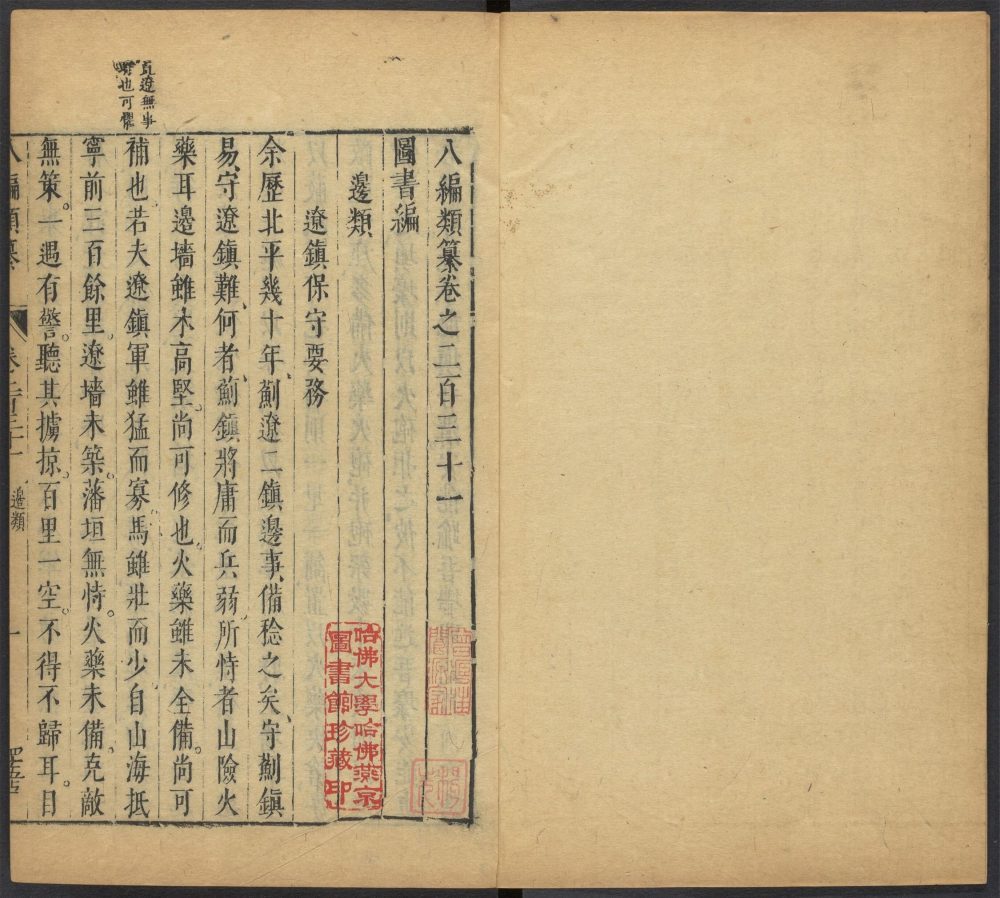 八編類纂卷之二百三十一
圖書編
邊類
遼鎮保守要務
余歷北平幾十年、薊遼二鎮邊事、備稔之矣、守薊鎮
易、守遼鎮難、何者、薊鎮將庸而兵弱、所恃者山險火
藥耳、邊墻雖未高堅、尚可修也、火藥雖未全備、尚可
補也、若夫遼鎮軍雖猛而寡、馬雖壯而少、自山海抵
寧前三百餘里、遼墻未築、藩垣無恃。火藥未備。克敵
無策。一遇有警。聽其擄掠。百里一空。不得不歸耳。目
遼無事
也可懼
八編類纂
邊類
一
哈佛大學哈佛燕京
圖書館珍藏印